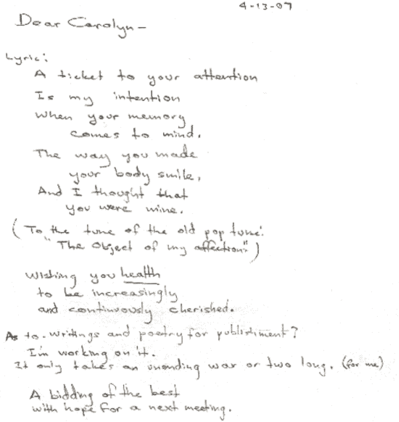 4-13-07
Dear Carolyn-
Lyric:
A ticket to your attention
Is my intention
When your memory
comes to mind.
The way you made
your body smile,
And I thought that
you were mine.
(To the tune of the old pop tune:
"The Object of my affection")
Wishing you health
to be increasingly
and continuously cherished.
As to writings and poetry for publishment?
I'm working on it.
It only takes an unending war or two long. (for me)
A bidding of the best
with hope for a next meeting.